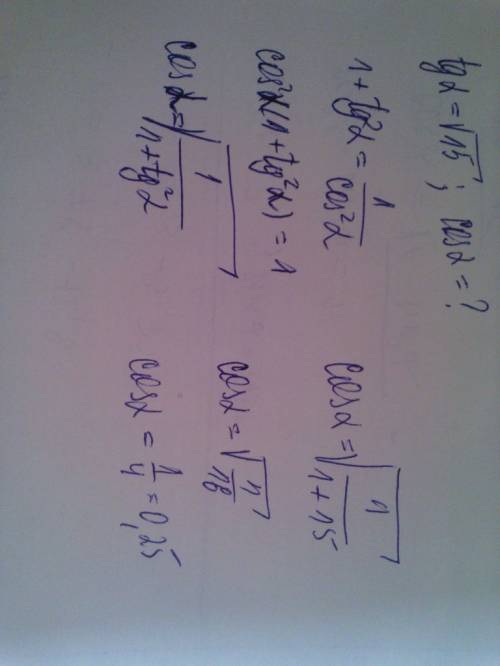 tgα = √15; cosα = ?
1 + tg²α = 1/cos²α
cos²α(1 + tg²α) = 1
cosα = √(1/(1 + tg²α))
cosα = √(1/(1 + 15))
cosα = √(1/16)
cosα = 1/4 = 0,25